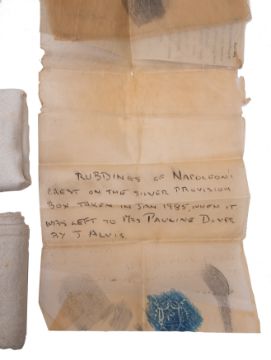 RUBBINGS OF NAPOLEON'S
CREST ON THE SILVER PROVISION
BOX TAKEN IN JAN 1985, WHEN IT
WAS LEFT TO MRS PAULINE DLVER
BY J ALVIS